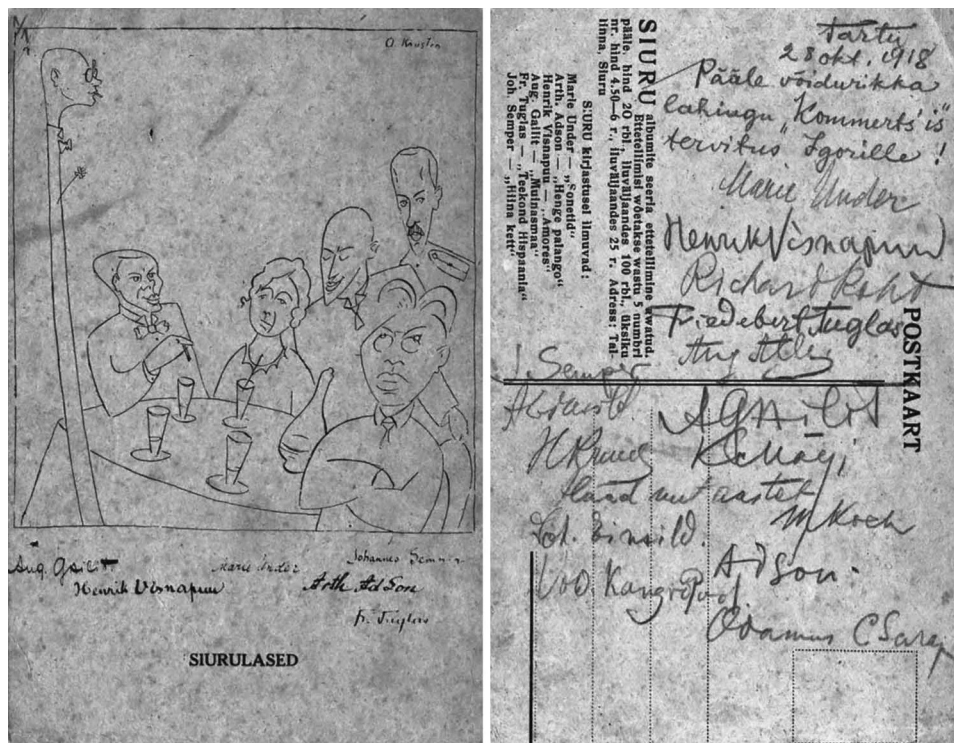 O. Krusten
Aug. Gailit
Henrik Visnapuu
Marie Under
Arth. Adson
Johannes Semper
Fr. Tuglas
SIURULASED
SIURU albumite seeria ettetellimine awatud.
Ettetellimisi wõetakse wastu 5 numbri
pääle. hind 20 rbl., iluwäljaandes 100 rbl., üksiku
nr. hind 4.50—6 r., iluväljaandes 25 r. Adress: Tal-
linna, Siuru
SIURU kirjastusel ilmuvad:
Marie Under — „Sonetid“
Arth. Adson — „Henge palango“
Henrik Visnapuu — „Amores“
Aug. Gailit — „Muinasmaa“
Fr. Tuglas — „Teekond Hispaania“
Joh. Semper — „Hiina kett“
POSTKAART
Tartu
28 okt. 1918
Pääle võidurikka
lahingu „Kommerts'is“
tervitus Igorille!
Marie Under
Henrik Visnapuu
Richard Roht
Friedebert Tuglas
Aug Alle
J. Semper
A Gailit
K Mägi
Häad uut aastat
M Koch
Joh. Einsild.
Adson.
Vold. Kangro Pool
Odamus C Sarap